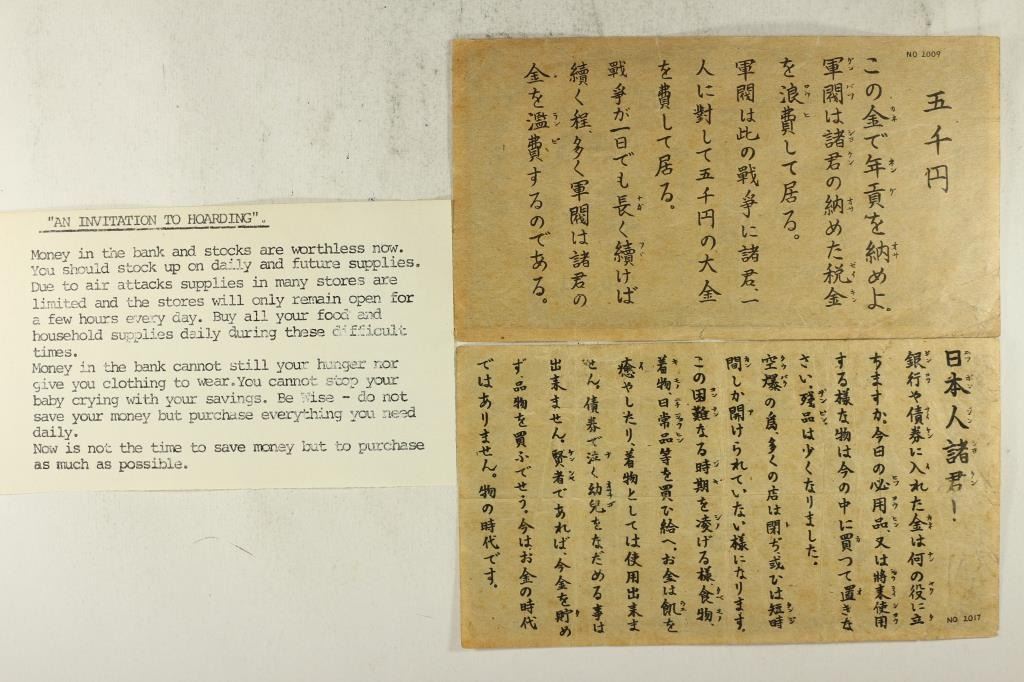 "AN INVITATION TO HOARDING".
Money in the bank and stocks are worthless now.
You should stock up on daily and future supplies.
Due to air attacks supplies in many stores are
limited and the stores will only remain open for
a few hours every day. Buy all your food and
household supplies daily during these difficult
times.
Money in the bank cannot still your hunger nor
give you clothing to wear.You cannot stop your
baby crying with your savings. Be Wise - do not
save your money but purchase everything you need
daily.
Now is not the time to save money but to purchase
as much as possible.
NO 1009
五千円
この金で年貢を納めよ。
軍閥は諸君の納めた税金
を浪費して居る。
軍閥は此の戰爭に諸君、一
人に對して五千円の大金
を費して居る。
戰爭が一日でも長く續けば
續く程、多く軍閥は諸君の
金を濫費するのである。
日本人諸君ー
銀行や債券に入れた金は何の役に立
ちますか、今日の必用品、又は將来使用
する様な物は今の中に買つて置きな
さい、残品は少くなりました。
空爆の爲、多くの店は閉ぢ、或ひは短時
間しか開けられていない様になります。
この困難なる時期を凌げる様、食物、
着物、日常品等を買ひ給へ、お金は飢を
癒やしたり、着物としては使用出来ま
せん、債券で泣く幼兒をなだめる事は
出来ません、賢者であれば、今金を貯め
ず、品物を買ふでせう。今はお金の時代
ではありません。物の時代です。
NO 1017